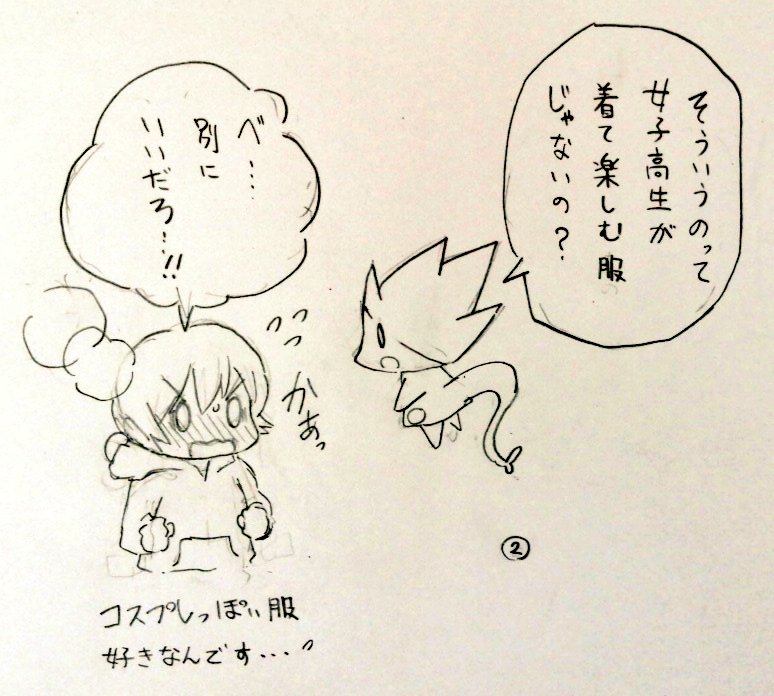 そういうのって
女子高生が
着て楽しむ服
じゃないの?
べ……
別に
いいだろ…!!
かあっ
コスプレっぽい服
好きなんです…
②